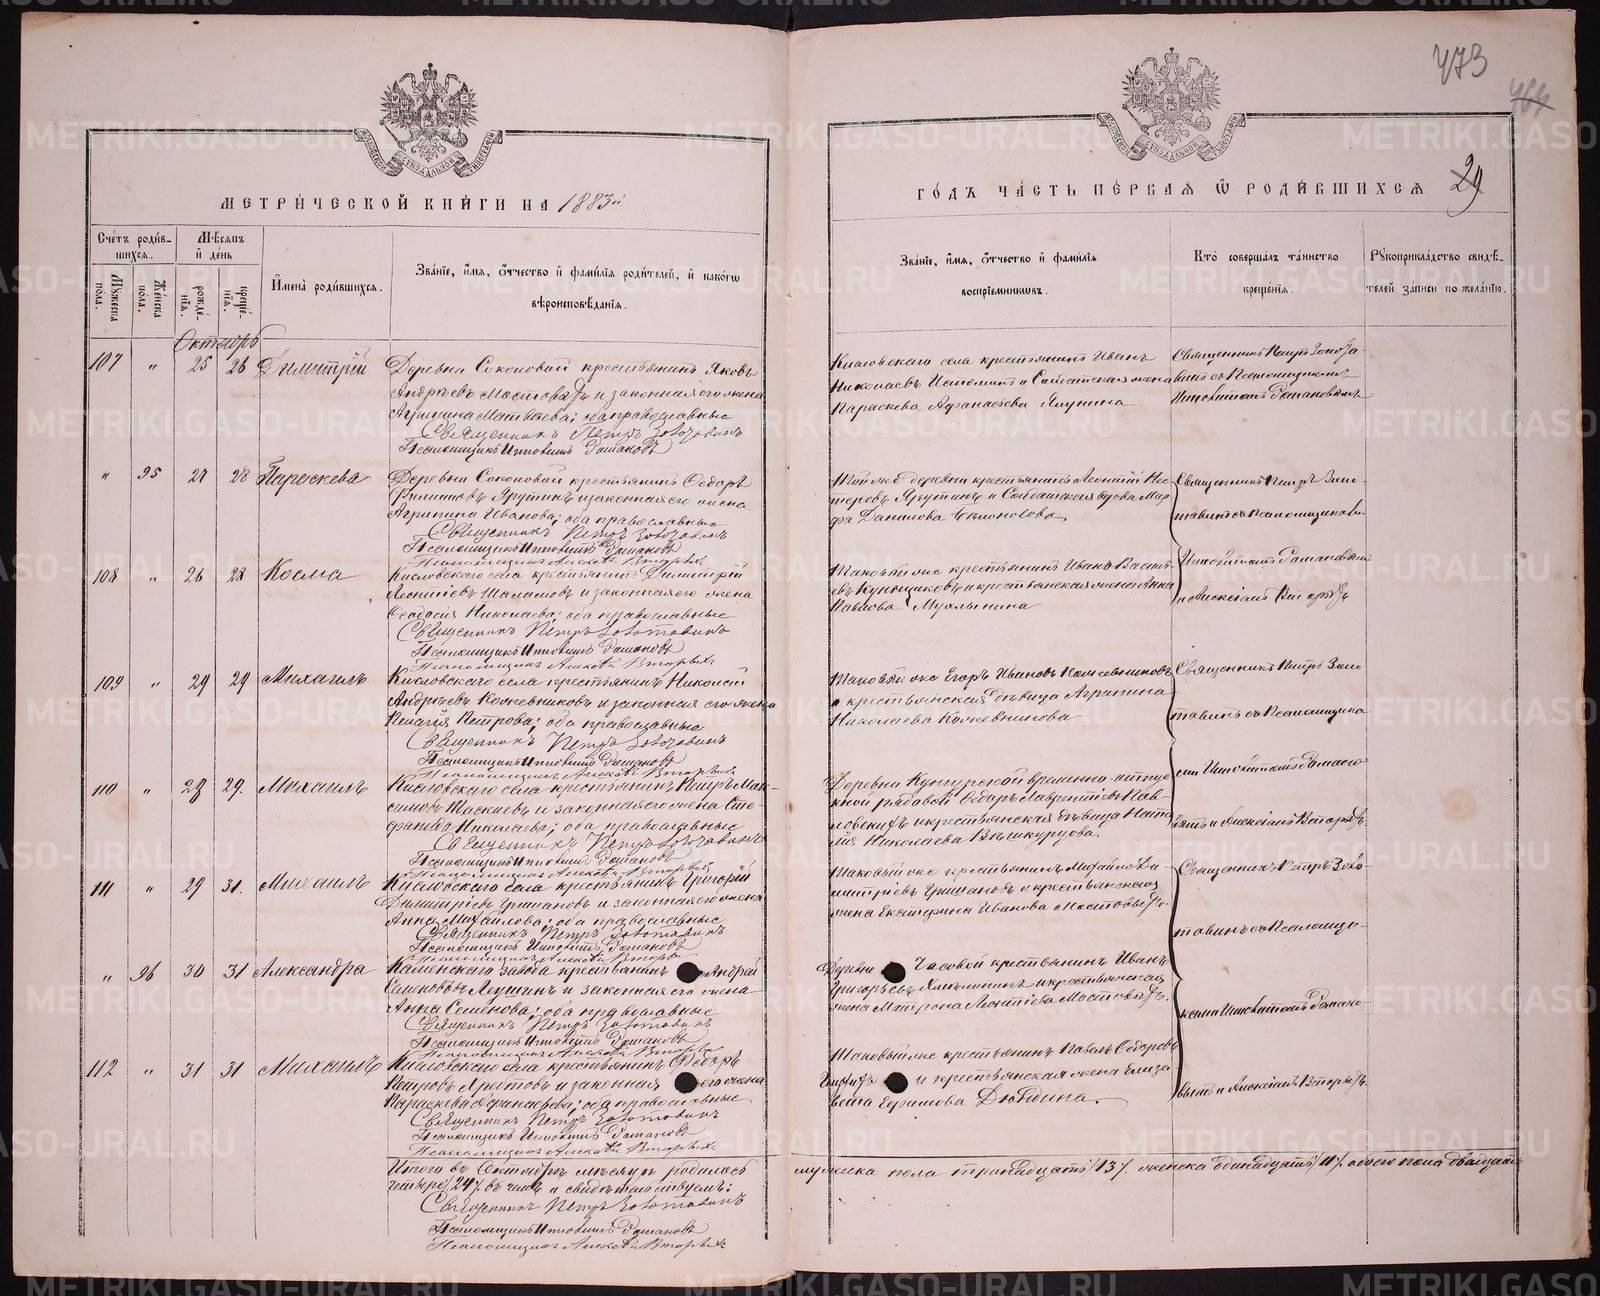 473
464
МЕТРИ́ЧЕСКОЙ КНИ́ГИ НА 1883й
ГО́ДЪ ЧА́СТЬ ПЕ́РВАЯ Ѡ РОДИ́ВШИХСЯ
29
Счётъ роди́вшихся.
Мужеска пола.
Женска пола.
Мѣсяцъ и день
рожденія.
крещенія.
Имена̀ роди́вшихся.
Зва́ніе, и́мя, о́тчество и фами́лія роди́телей, и како́гѡ
вѣроисповѣ́данія.
Зва́ніе, и́мя, о́тчество и фами́лія
воспріе́мникѡвъ.
Кто̀ соверша́лъ та́инство
креще́нія.
Рукоприкла́дство свидѣ́-
телей за́писи по жела́нію.
Октябрь
107 „ 25 26 Димитрій
Деревни Соколовой крестьянинъ Яковъ
Андреевъ Мостовыхъ и законная его жена
Агрипина Матвѣева; оба православные
Священникъ Петръ Золотавинъ
Псаломщикъ Ипполитъ Романовъ
Кисловскаго села крестьянинъ Иванъ
Николаевъ Истоминъ и Солдатская жена
Параскева Афанасьева Ялунина
Священникъ Петръ Золота-
винъ съ Псаломщикомъ
Ипполитомъ Романовымъ
„ 95 27 28 Параскева
Деревни Соколовой крестьянинъ Ѳедоръ
Филипповъ Ярутинъ и законная его жена
Агрипина Иванова; оба православные
Священникъ Петръ Золотавинъ
Псаломщикъ Ипполитъ Романовъ
Псаломщикъ Алексѣй Вторыхъ
Той же деревни крестьянинъ Леонтій Нес-
теровъ Ярутинъ и Солдатская вдова Мар-
фа Данилова
Священникъ Петръ Золо-
тавинъ съ Псаломщиками
108 „ 26 28 Косма
Кисловскаго села крестьянинъ Димитрій
Леонтіевъ Шаламовъ и законная его жена
Ѳеодосія Николаева; оба православные
Священникъ Петръ Золотавинъ
Псаломщикъ Ипполитъ Романовъ
Псаломщикъ Алексѣй Вторыхъ
Таковый же крестьянинъ Иванъ Василь-
евъ Кунщиковъ и крестьянская жена Анна
Павлова
Ипполитомъ Романовымъ
и Алексіемъ Вторыхъ
109 „ 29 29 Михаилъ
Кисловскаго села крестьянинъ Николай
Андреевъ Колчевниковъ и законная его жена
Пелагія Петрова; оба православные
Священникъ Петръ Золотавинъ
Псаломщикъ Ипполитъ Романовъ
Псаломщикъ Алексѣй Вторыхъ
Таковый же Егоръ Ивановъ Колчевниковъ
и крестьянская дѣвица Агрипина
Николаева Колчевникова
Священникъ Петръ Золо-
тавинъ съ Псаломщика-
110 „ 28 29. Михаилъ
Кисловскаго села крестьянинъ Петръ Мак-
симовъ и законная его жена Сте-
фанида Николаева; оба православные
Священникъ Петръ Золотавинъ
Псаломщикъ Ипполитъ Романовъ
Псаломщикъ Алексѣй Вторыхъ
Деревни Кунгурской временно-отпус-
кной рядовой Ѳедоръ Лаврентіевъ Пав-
ловскихъ и крестьянская дѣвица Ната-
лія Николаева
ми Ипполитомъ Романо-
вымъ и Алексіемъ Вторыхъ
111 „ 29 31. Михаилъ
Кисловскаго села крестьянинъ Григорій
Димитріевъ Гришановъ и законная его жена
Анна Михайлова; оба православные
Священникъ Петръ Золотавинъ
Псаломщикъ Ипполитъ Романовъ
Псаломщикъ Алексѣй Вторыхъ
Таковый же крестьянинъ Михайло Ди-
митріевъ Гришановъ и крестьянская
жена Екатерина Иванова Мостовыхъ.
Священникъ Петръ Золо-
тавинъ съ Псаломщи-
„ 96 30 31 Александра
Каменского завода крестьянинъ Андрей
Семеновъ и законная его жена
Анна Семенова; оба православные
Священникъ Петръ Золотавинъ
Псаломщикъ Ипполитъ Романовъ
Псаломщикъ Алексѣй Вторыхъ
Деревни Часовой крестьянинъ Иванъ
Григорьевъ и крестьянская
жена Матрона Леонтіева Мостовыхъ.
ками Ипполитомъ Романо-
112 „ 31 31 Михаилъ
Кисловскаго села крестьянинъ Ѳедоръ
Петровъ и законная его жена
Параскева Афанасьева; оба православные
Священникъ Петръ Золотавинъ
Псаломщикъ Ипполитъ Романовъ
Псаломщикъ Алексѣй Вторыхъ
Таковый же крестьянинъ Павелъ Ѳедоровъ
и крестьянская жена Елиза-
вета Ефимова
вымъ и Алексіемъ Вторыхъ
Итого въ Октябрѣ мѣсяцѣ родилось мужеска пола тринадцать /13/. женска одинадцать /11/. обоего пола двадцать
четыре /24/. въ чемъ и свидѣтельствуемъ:
Священникъ Петръ Золотавинъ
Псаломщикъ Ипполитъ Романовъ
Псаломщикъ Алексѣй Вторыхъ
METRIKI.GASO-URAL.RU